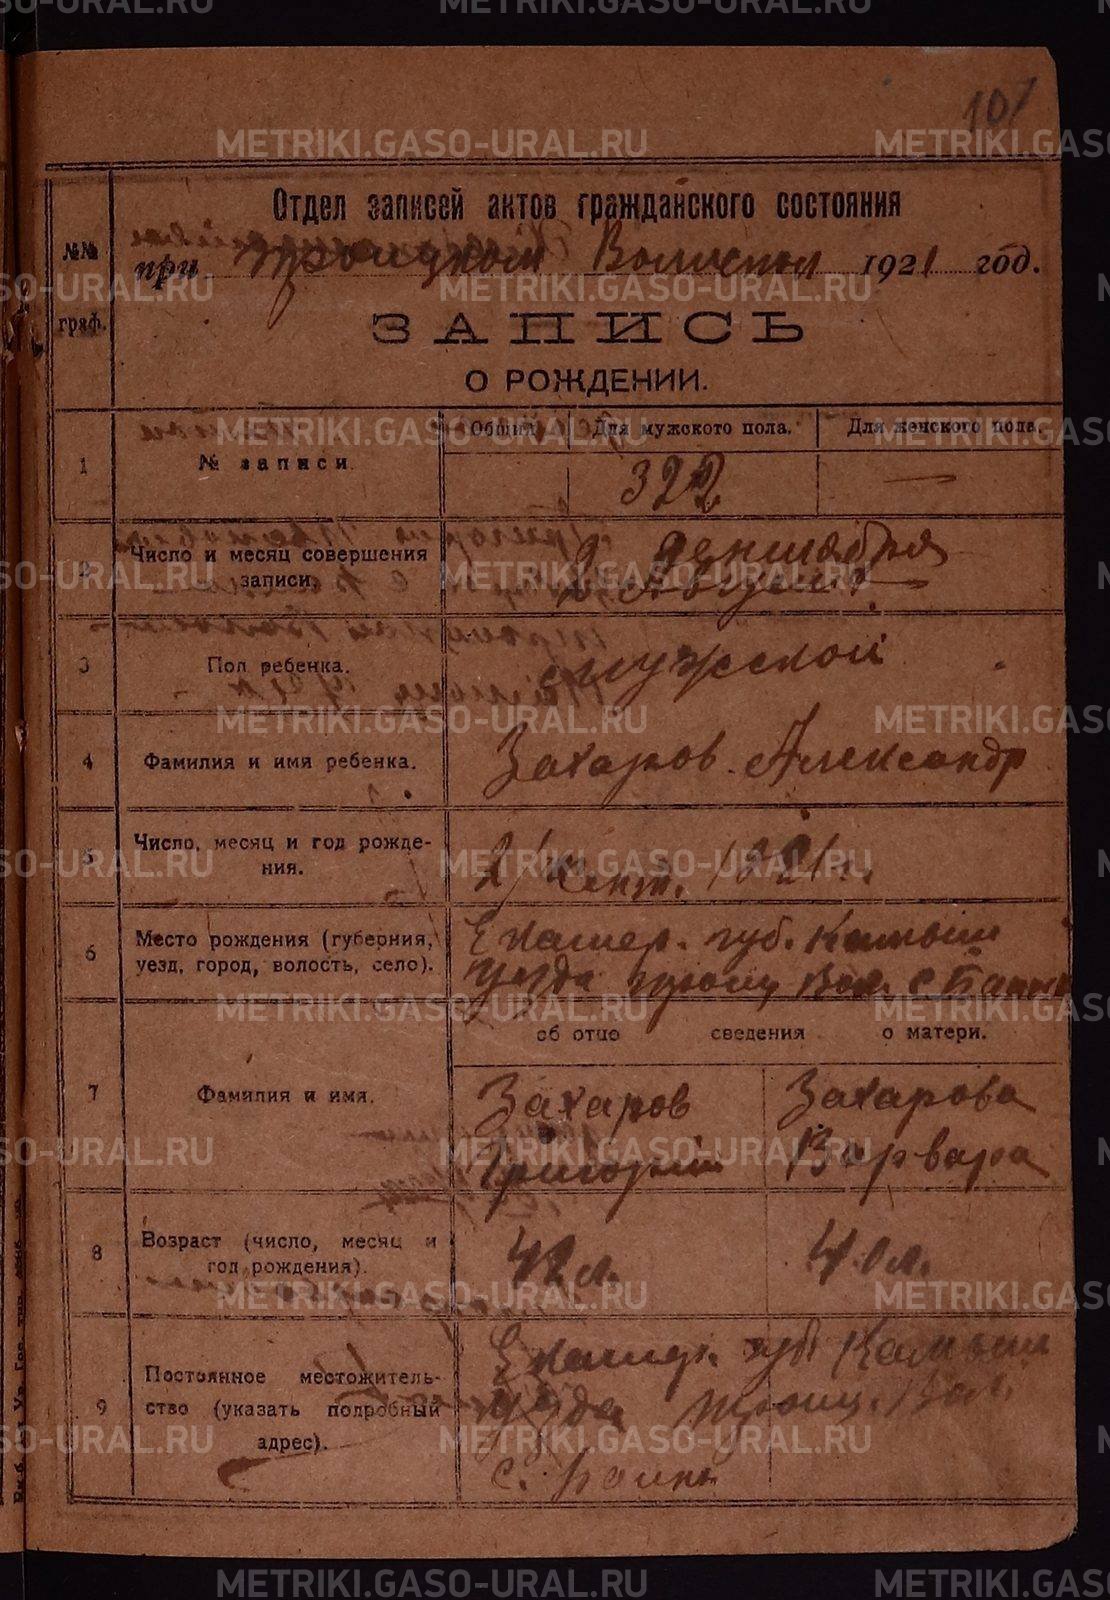 101
Отдел записей актов гражданского состояния
при Троицком Волиспол 1921 год.
№№ граф.
ЗАПИСЬ
О РОЖДЕНИИ.
Общий Для мужского пола. Для женского пола.
1 № записи. 322 —
2 Число и месяц совершения записи. 2 Августа
3 Пол ребенка. мужской
4 Фамилия и имя ребенка. Захаров Александр
5 Число, месяц и год рождения. 2/ сент. 1921 г.
6 Место рождения (губерния, Екатер. губ. Камышл
уезд, город, волость, село). уезда троиц Вол. с.
об отце сведения о матери.
7 Фамилия и имя. Захаров Захарова
Григорий Варвара
8 Возраст (число, месяц и 42 л. 40 л.
год рождения).
9 Постоянное местожитель- губ Камышл
ство (указать подробный уезда троиц. Вол.
адрес). с.
METRIKI.GASO-URAL.RU